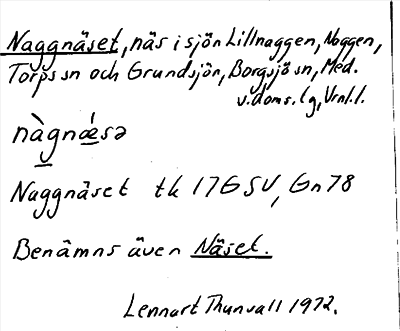 Naggnäset, näs i sjön Lillnaggen, Noggen,
Torps sn och Grundsjön, Borgsjö sn, Med.
v.doms.lg, Vrnl.l.
nàgnǽsə
Naggnäset tk 17G SV, Gn 78
Benämns även Näset.
Lennart Thunvall 1972.